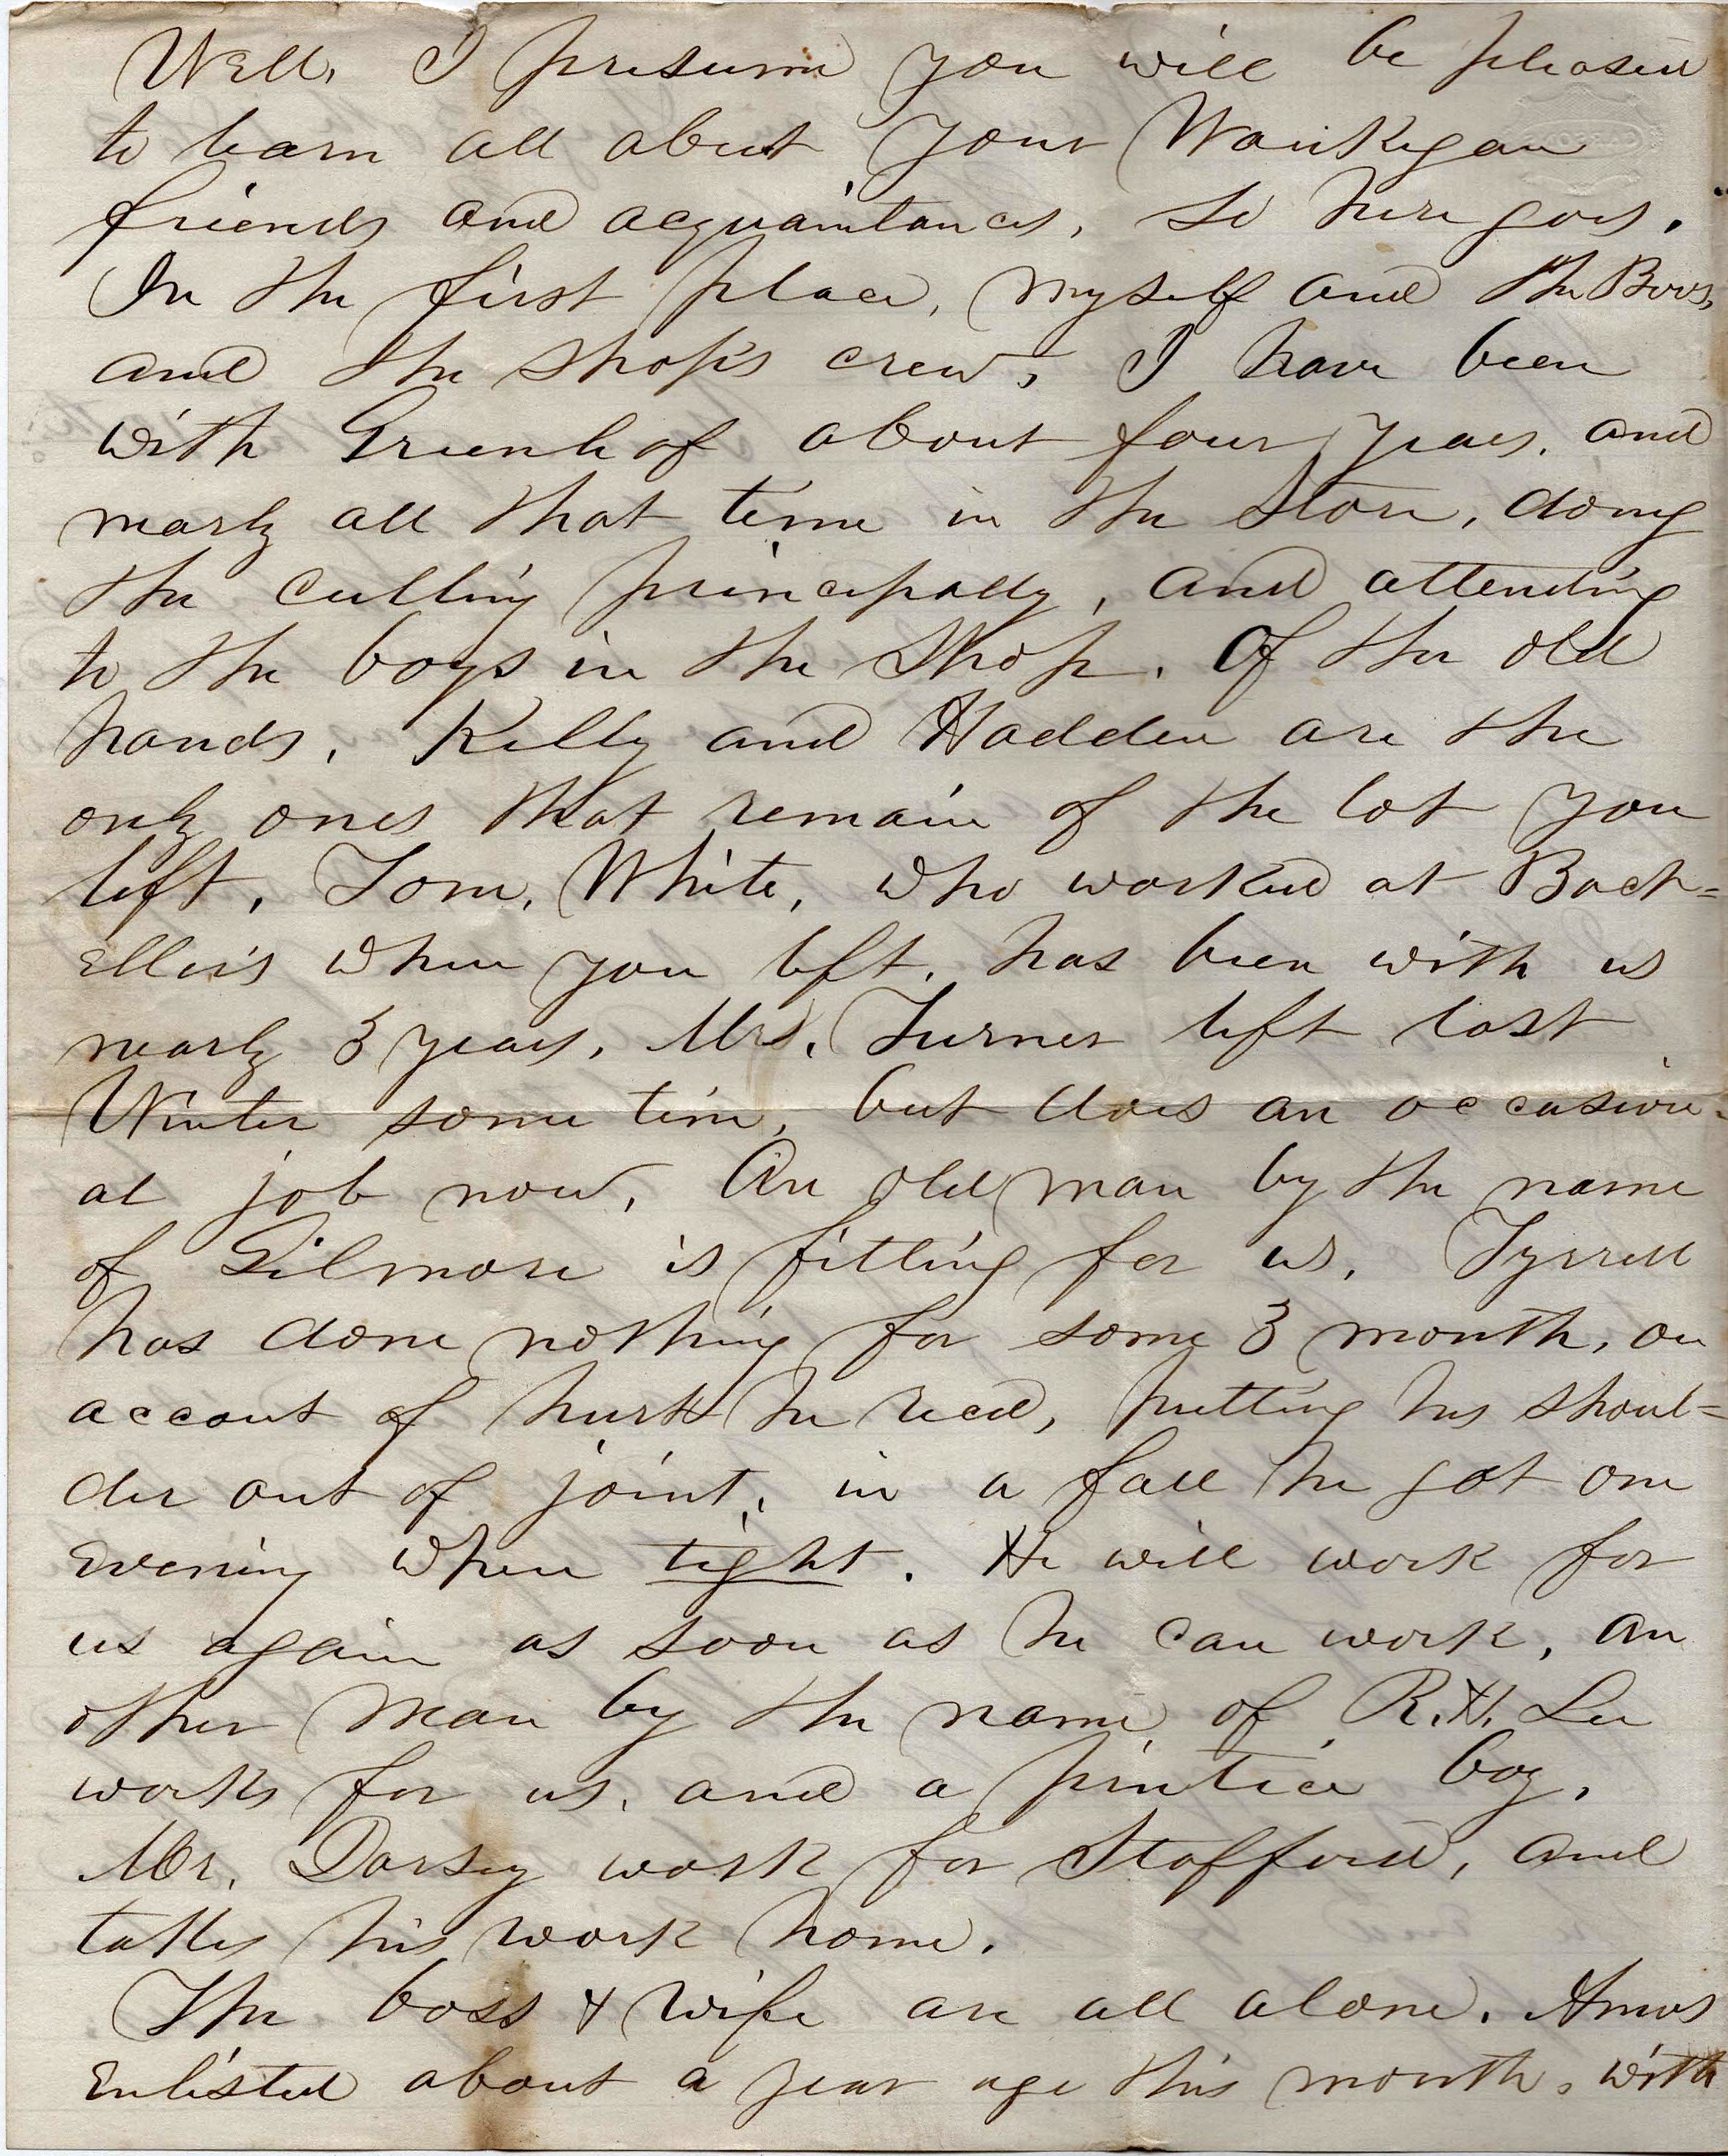 Well, I presume you will be pleased
to learn all about your Waukegan
friends and acquaintances, so here goes.
In the first place, myself and the Boss,
and the shop's crew, I have been
with Greenleof about four years, and
nearly all that time in the Store, doing
the cutting principally, and attending
to the boys in the Shop. Of the old
hands, Kelly and Hadden are the
only ones that remain of the lot you
left, Tom, White, who worked at Bach=
eller's when you left, has been with us
nearly 3 years, Mrs. Turner left last
Winter some time, but does an occasion-
al job now, An old man by the name
of Gilmore is fitting for us, Tyrrell
has done nothing for some 3 month, on
accout of hurt he recd, putting his shoul=
der out of joint, in a fall he got one
Evening when tight. He will work for
us again as soon as he can work, an
other man by the name of R.H. Lee
works for us, and a printice boy,
Mr. Dorsey work for Stafford, and
takes his work home.
The boss & wife are all alone. Amos
Enlisted about a year ago this month, with